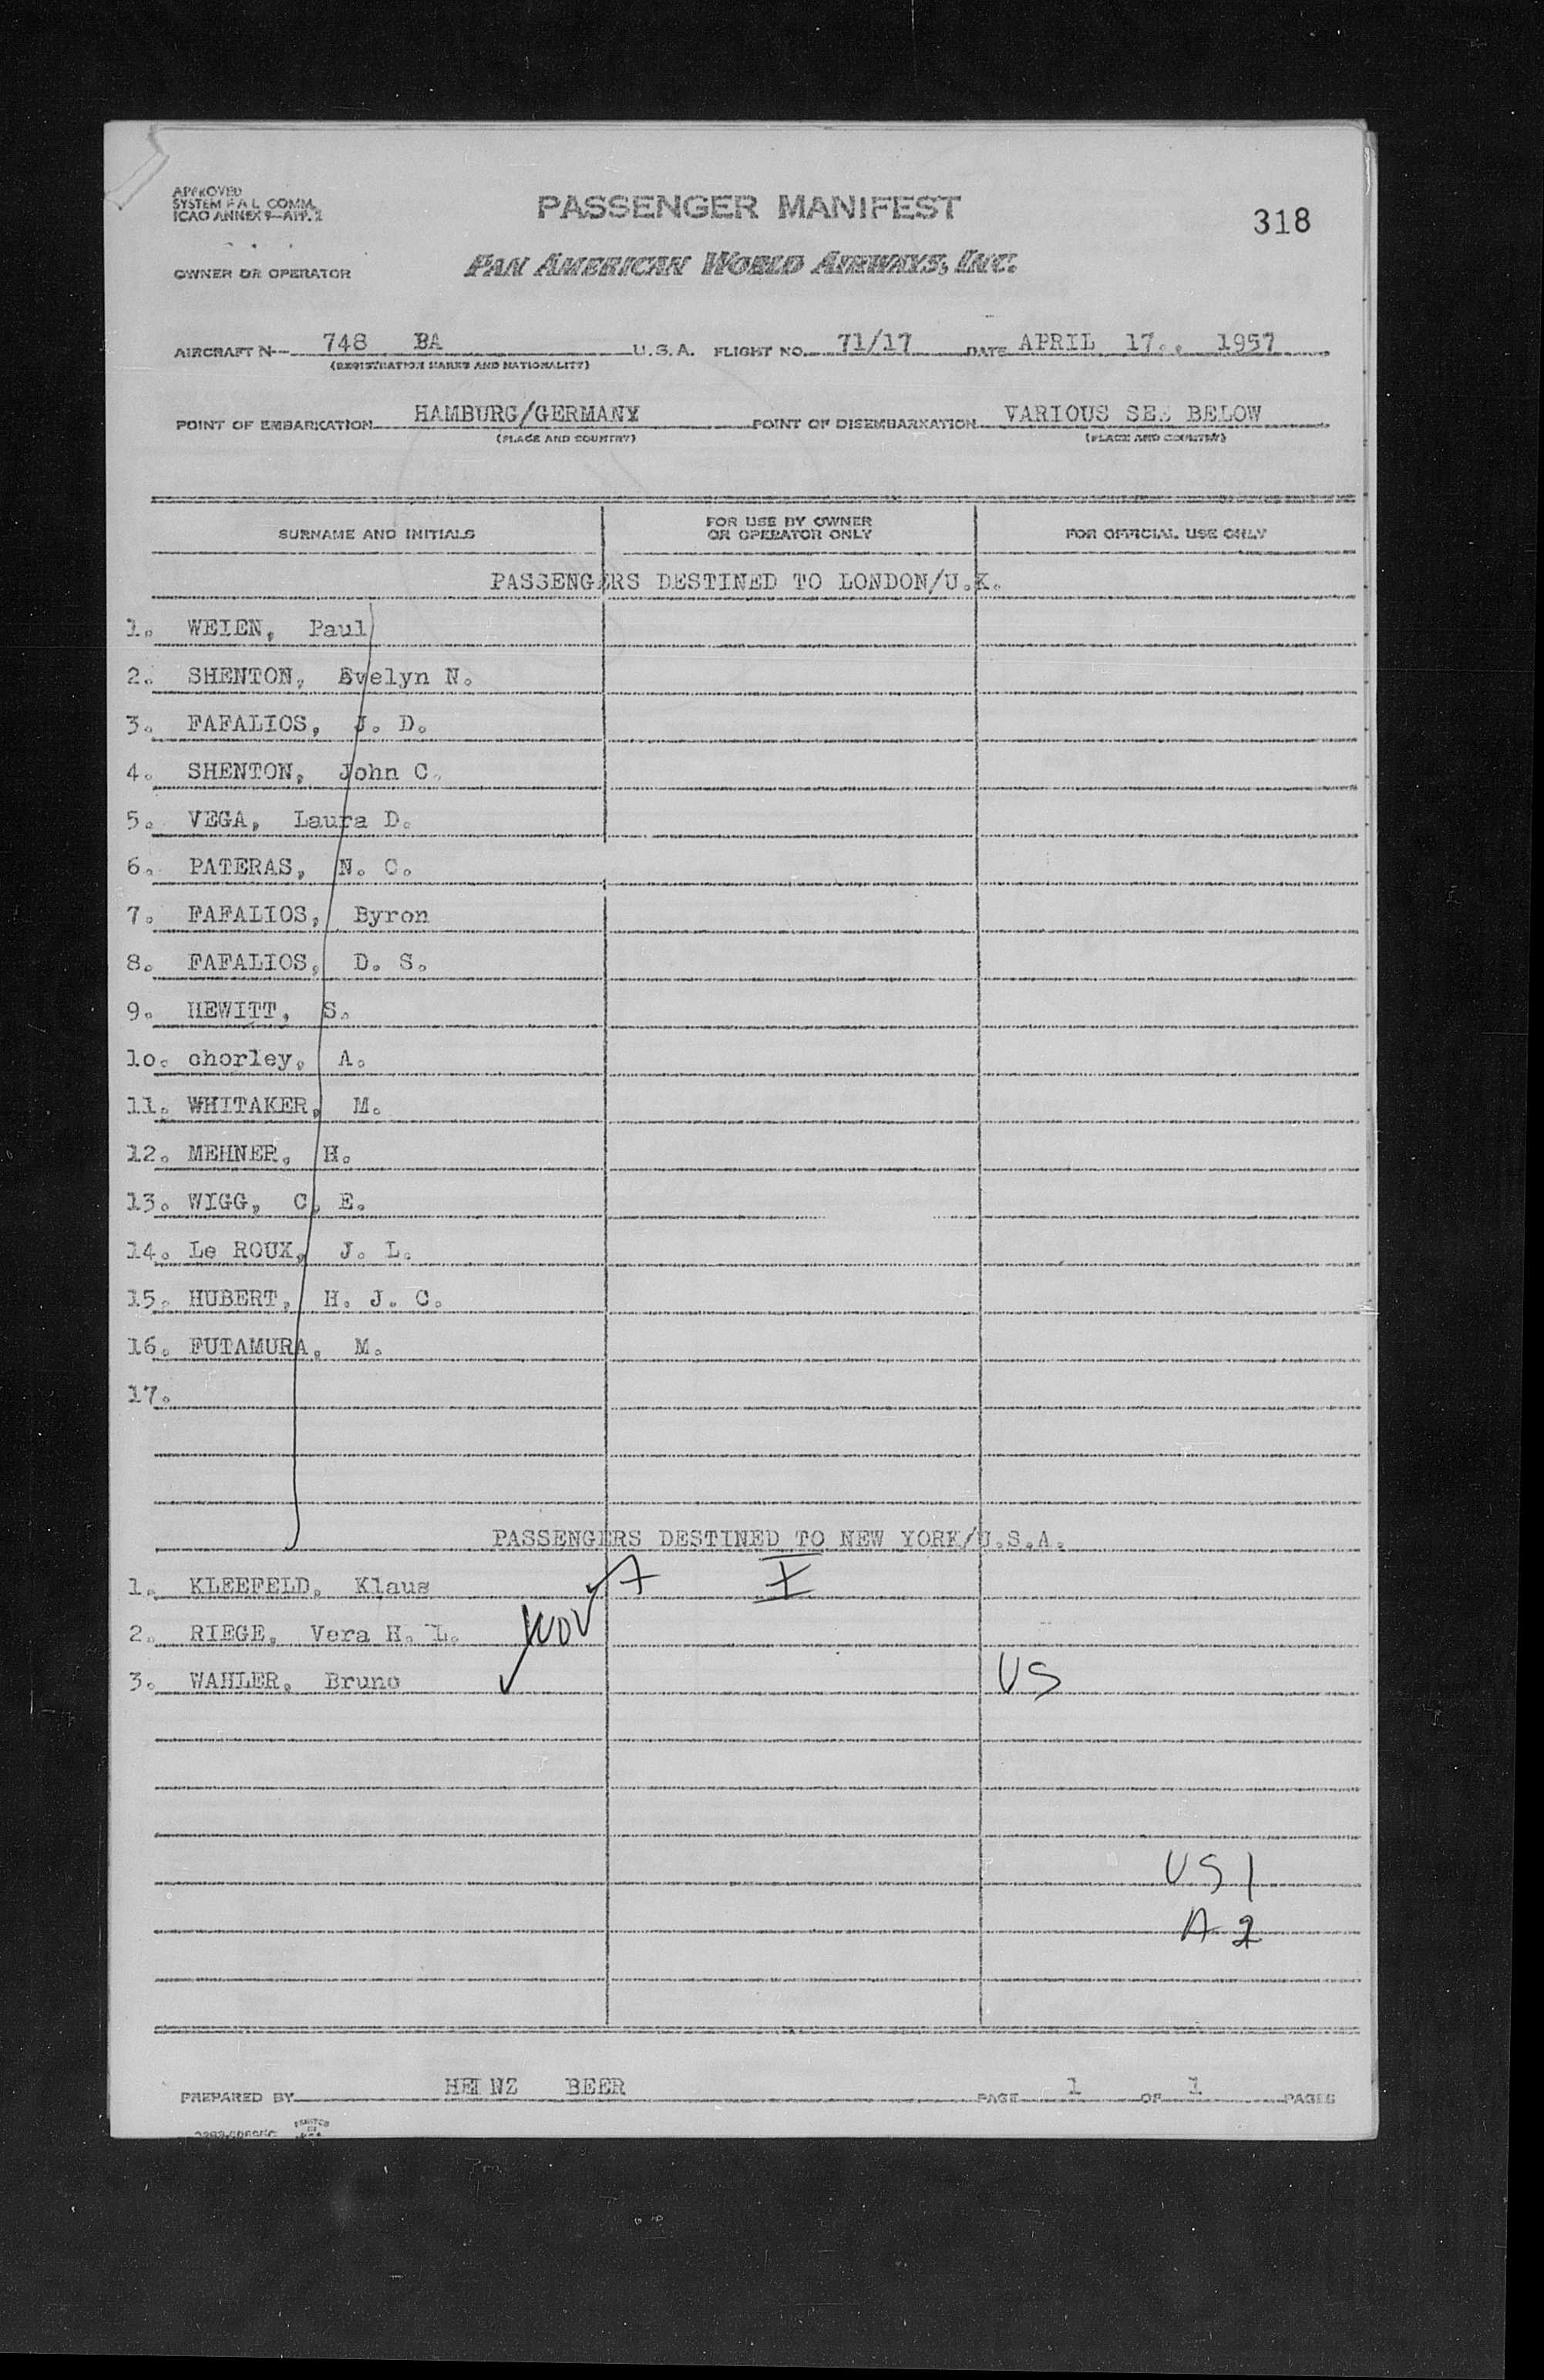 APPROVED
SYSTEM F A L COMM.
ICAO ANNEX 9—APP. 2
PASSENGER MANIFEST
318
OWNER OR OPERATOR
PAN AMERICAN WORLD AIRWAYS, INC.
AIRCRAFT N— 748 BA U.S.A. FLIGHT NO. 71/17 DATE APRIL 17., 1957
(REGISTRATION MARKS AND NATIONALITY)
POINT OF EMBARKATION HAMBURG/GERMANY POINT OF DISEMBARKATION VARIOUS SEE BELOW
(PLACE AND COUNTRY) (PLACE AND COUNTRY)
SURNAME AND INITIALS FOR USE BY OWNER OR OPERATOR ONLY FOR OFFICIAL USE ONLY
PASSENGERS DESTINED TO LONDON/U.K.
1. WEIEN, Paul
2. SHENTON, Evelyn N.
3. FAFALIOS, J. D.
4. SHENTON, John C.
5. VEGA, Laura D.
6. PATERAS, N. C.
7. FAFALIOS, Byron
8. FAFALIOS, D. S.
9. HEWITT, S.
1o. chorley, A.
11. WHITAKER, M.
12. MEHNER, H.
13. WIGG, C. E.
14. Le ROUX, J. L.
15. HUBERT, H. J. C.
16. FUTAMURA, M.
17.
PASSENGERS DESTINED TO NEW YORK/U.S.A.
1. KLEEFELD, Klaus I
2. RIEGE, Vera H. L.
3. WAHLER, Bruno US
US 1
A 2
PREPARED BY HEINZ BEER PAGE 1 OF 1 PAGES